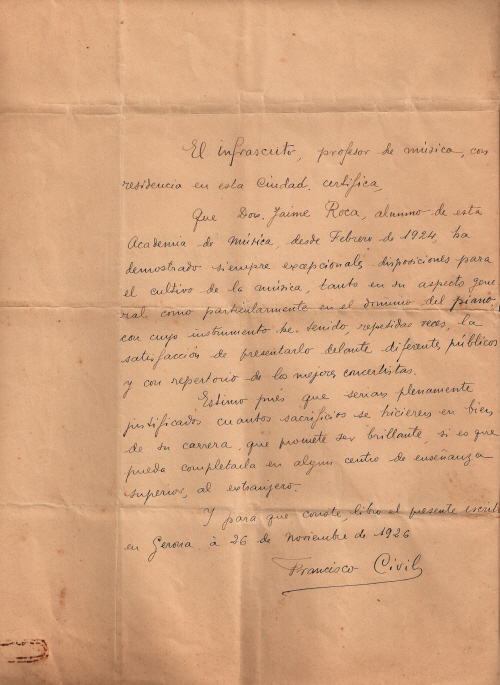 El infrascrito, profesor de música, con
residencia en esta Ciudad, certifica,
Que Don Jaime Roca, alumno de esta
Academia de Música, desde Febrero de 1924, ha
demostrado siempre excepcionales disposiciones para
el cultivo de la música, tanto en su aspecto gene
ral como particularmente en el dominio del piano,
con cuyo instrumento he tenido, repetidas veces, la
satisfacción de presentarlo delante diferentes públicos
y con repertorio de los mejores concertistas.
Estimo pués que serian plenamente
justificados cuantos sacrificios se hicieren en bien
de su carrera, que promete ser brillante, si es que
pueda completarla en algun centro de enseñanza
superior, al extranjero.
Y para que conste, libro el presente escrito
en Gerona à 26 de Noviembre de 1926
Francisco Civil